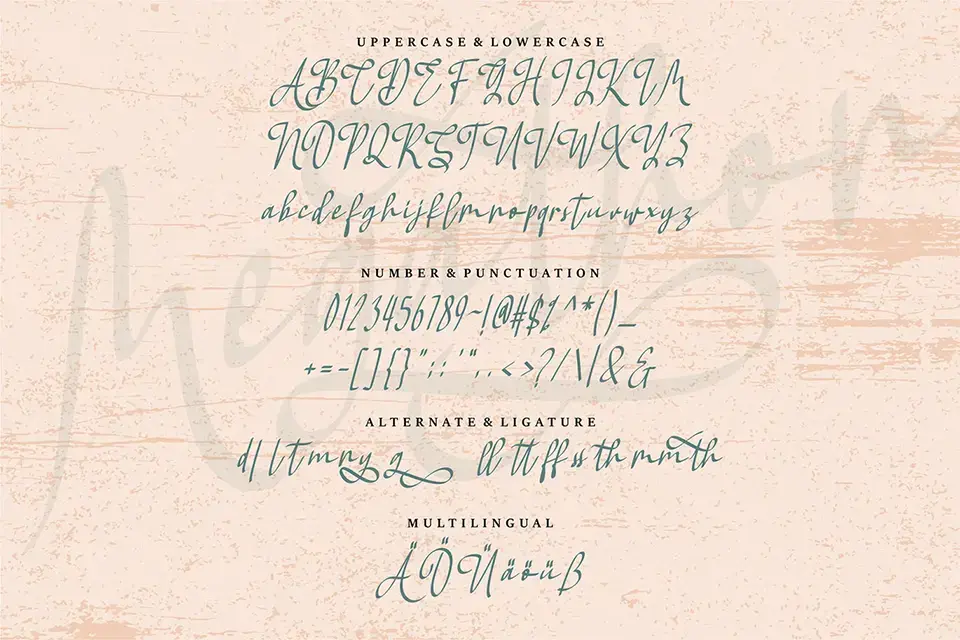 UPPERCASE & LOWERCASE
ABCDEFGHIJKLM
NOPQRSTUVWXYZ
abcdefghijklmnopqrstuvwxyz
NUMBER & PUNCTUATION
0123456789~!@#$%^*()_
+=-[]{}":;'";,.<>?/\|&&
ALTERNATE & LIGATURE
dlltmnyg ll tt ff ss th mm th
MULTILINGUAL
ÄÖÜäöüß